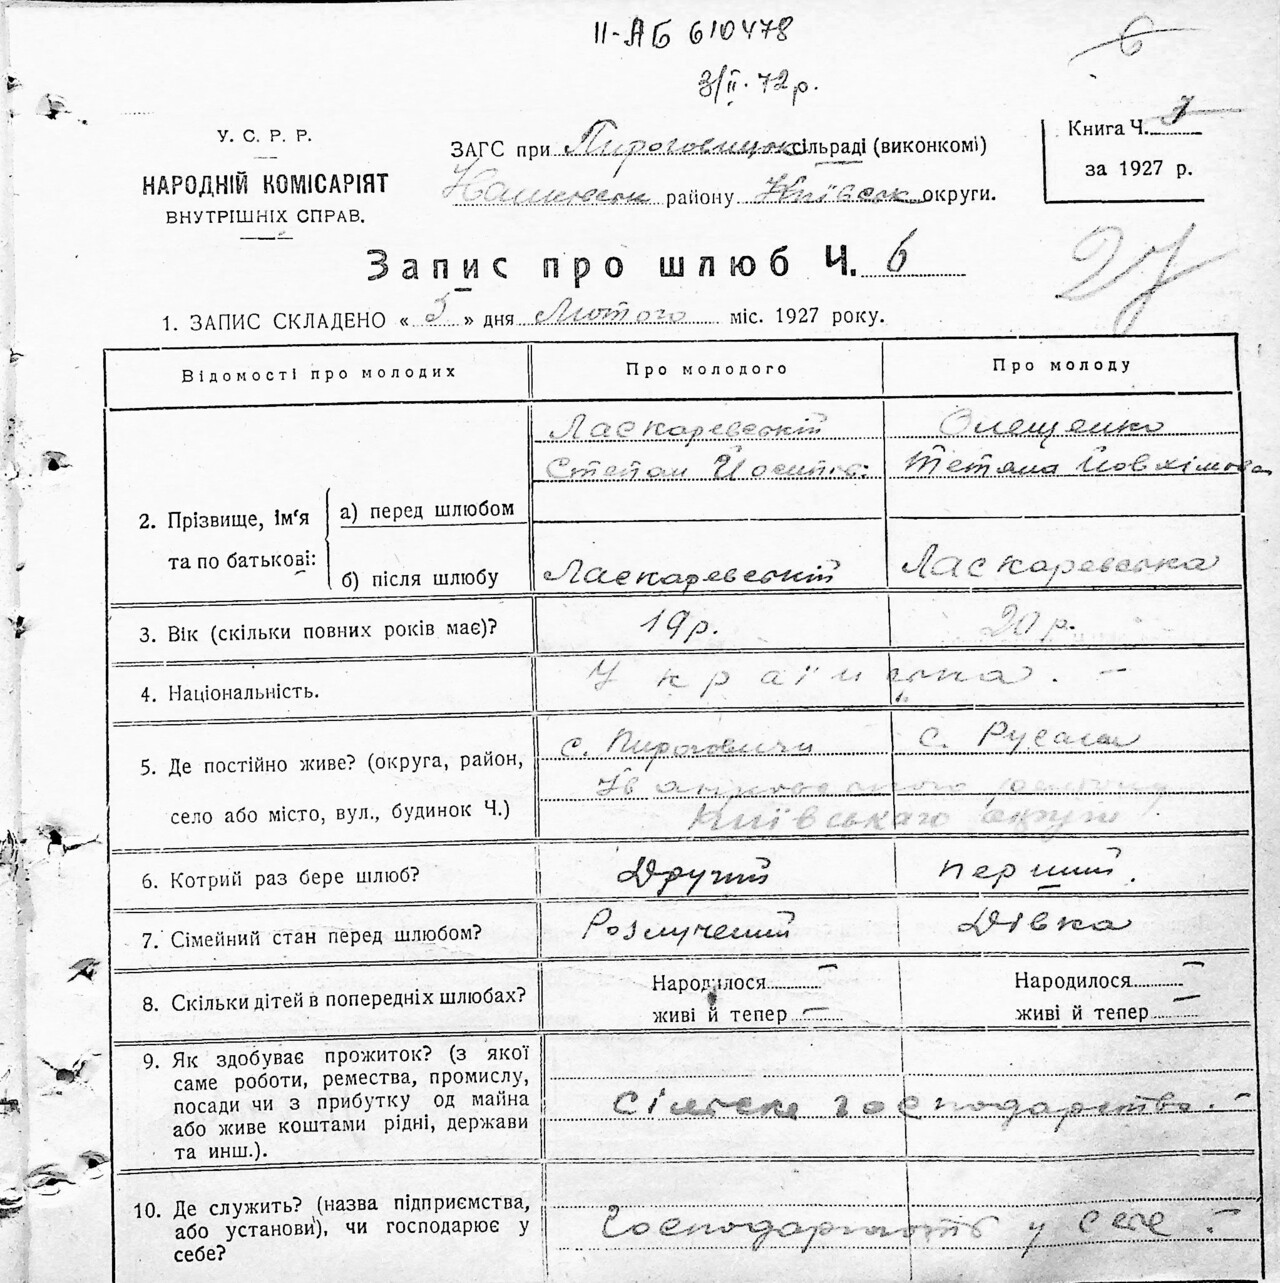 ІІ-АБ 610478
3/ІІ. 72 р.
6
У. С. Р. Р.
НАРОДНІЙ КОМІСАРІЯТ
ВНУТРІШНІХ СПРАВ.
ЗАГС при сільраді (виконкомі)
району Київськ округи.
Книга Ч.
за 1927 р.
27
Запис про шлюб Ч. 6
1. ЗАПИС СКЛАДЕНО « » дня Лютого міс. 1927 року.
Відомості про молодих Про молодого Про молоду
Ласкаревській Олещенко
Степан Йосипів: Тетяна Йовхімова
2. Прізвище, ім'я та по батькові: а) перед шлюбом
б) після шлюбу Ласкаревській Ласкаревська
3. Вік (скільки повних років має)? 19 р. 20 р.
4. Національність. Українська. —
5. Де постійно живе? (округа, район, с. Пироговичи с.
село або місто, вул., будинок Ч.)
Київськаго округи
6. Котрий раз бере шлюб? Другий перший.
7. Сімейний стан перед шлюбом? Розлучений Дівка
8. Скільки дітей в попередніх шлюбах? Народилося — Народилося —
живі й тепер — живі й тепер —
9. Як здобуває прожиток? (з якої
саме роботи, ремества, промислу,
посади чи з прибутку од майна
або живе коштами рідні, держави
та инш.).
господарство. —
10. Де служить? (назва підприємства,
або установи), чи господарює у
себе?
у себе —